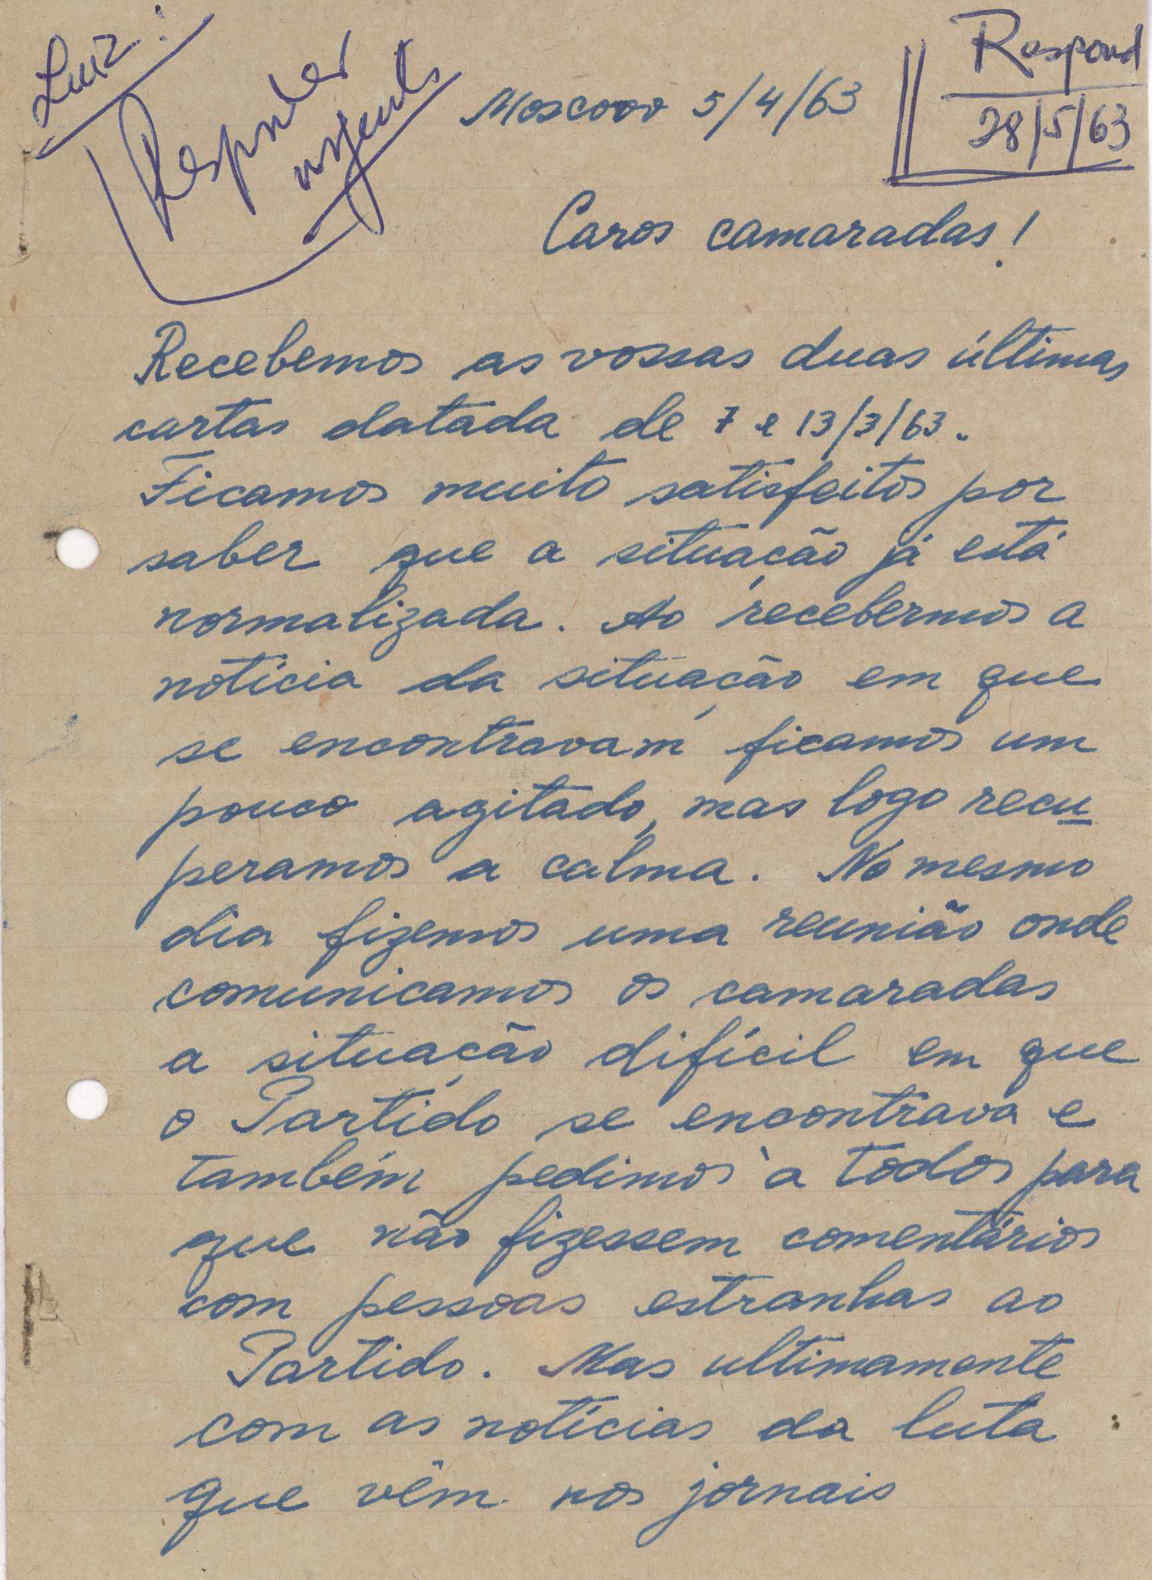 Luiz:
Responder
urgente
Respond
28/5/63
Moscovo 5/4/63
Caros camaradas!
Recebemos as vossas duas últimas
cartas datada de 7 e 13/3/63.
Ficamos muito satisfeitos por
saber que a situação já está
normalizada. Ao recebermos a
notícia da situação em que
se encontravam ficamos um
pouco agitado, mas logo recu
peramos a calma. No mesmo
dia fizemos uma reunião onde
comunicamos os camaradas
a situação difícil em que
o Partido se encontrava e
também pedimos à todos para
que não fizessem comentários
com pessoas estranhas ao
Partido. Mas ultimamente
com as notícias da luta
que vêm nos jornais